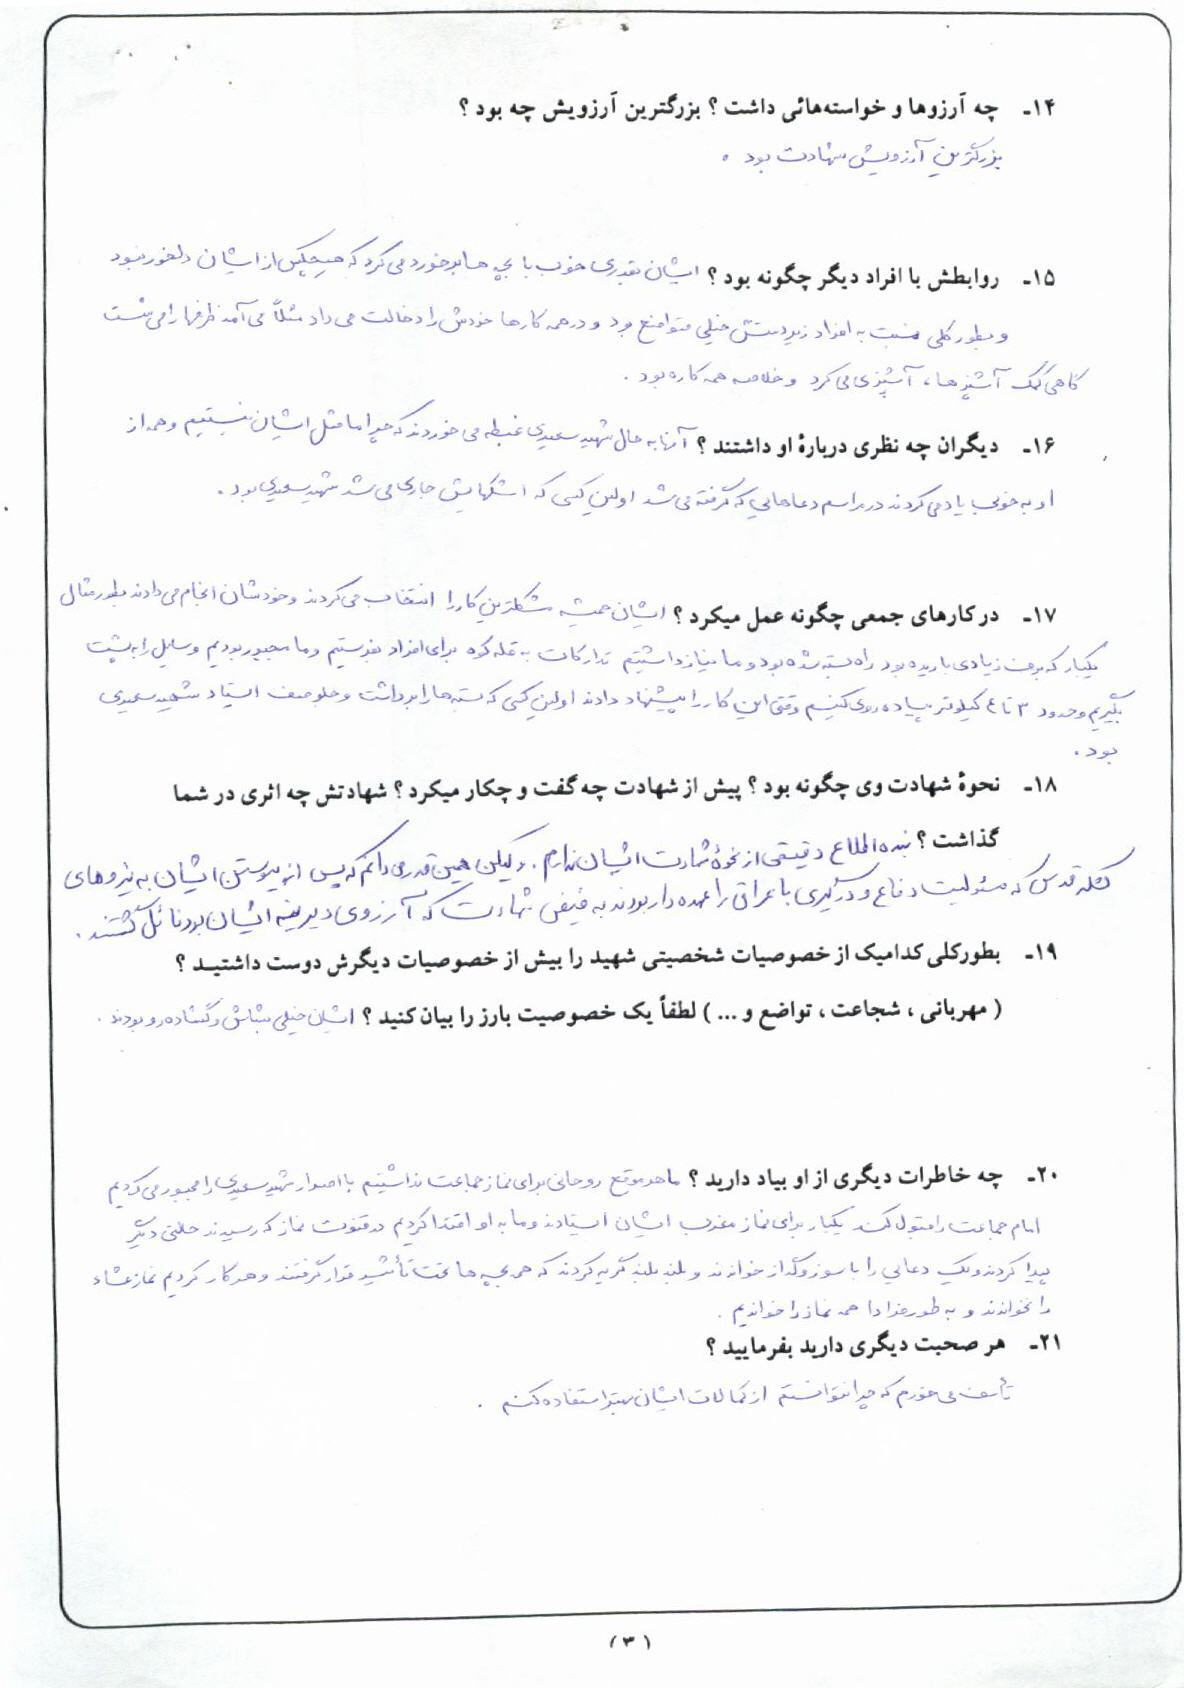 ۱۴ـ چه آرزوها و خواسته‌هائی داشت ؟ بزرگترین آرزویش چه بود ؟
بزرگترین آرزویش شهادت بود .
۱۵ـ روابطش با افراد دیگر چگونه بود ؟ ایشان بقدری خوب با بچه ها برخورد می کرد که هیچکس از ایشان دلخور نبود
و بطور کلی نسبت به افراد زیردستش خیلی متواضع بود و در همه کارها خودش را دخالت می داد مثلاً می آمد ظرفها را می شست
گاهی کمک آشپزها ، آشپزی می کرد و خلاصه همه کاره بود .
۱۶ـ دیگران چه نظری دربارهٔ او داشتند ؟ آنها به حال شهید سعیدی غبطه می خوردند که چرا ما مثل ایشان نیستیم و همه از
او به خوبی یاد می کردند در مراسم دعاهایی که گرفته می شد اولین کسی که اشکهایش جاری می شد شهید سعیدی بود .
۱۷ـ در کارهای جمعی چگونه عمل میکرد ؟ ایشان همیشه مشکلترین کار را انتخاب می کردند و خودشان انجام می دادند بطور مثال
یکبار که برف زیادی باریده بود راه بسته شده بود و ما نیاز داشتیم تدارکات به قله کوه برای افراد بفرستیم و ما مجبور بودیم وسایل را به پشت
بگیریم و حدود ۳ تا ٤ کیلومتر پیاده روی کنیم وقتی این کار را پیشنهاد دادند اولین کسی که بسته ها را برداشت و جلو صف ایستاد شهید سعیدی
بود .
۱۸ـ نحوهٔ شهادت وی چگونه بود ؟ پیش از شهادت چه گفت و چکار میکرد ؟ شهادتش چه اثری در شما
گذاشت ؟ بنده اطلاع دقیقی از نحوهٔ شهادت ایشان ندارم . ولیکن همین قدر می دانم که پس از پیوستن ایشان به نیروهای
لشکر قدس که مسئولیت دفاع و درگیری با عراق را عهده دار بودند به فیض شهادت که آرزوی دیرینه ایشان بود نائل گشتند .
۱۹ـ بطورکلی کدامیک از خصوصیات شخصیتی شهید را بیش از خصوصیات دیگرش دوست داشتید ؟
( مهربانی ، شجاعت ، تواضع و ... ) لطفاً یک خصوصیت بارز را بیان کنید ؟ ایشان خیلی بشاش و گشاده رو بودند .
۲۰ـ چه خاطرات دیگری از او بیاد دارید ؟ ما هر موقع روحانی برای نماز جماعت نداشتیم با اصرار شهید سعیدی را مجبور می کردیم
امام جماعت را قبول کند یکبار برای نماز مغرب ایشان ایستادند و ما به او اقتدا کردیم در قنوت نماز که رسیدند حالتی دیگر
پیدا کردند و یک دعایی را با سوز و گداز خواندند و بلند بلند گریه کردند که همه بچه ها تحت تأثیر قرار گرفتند و هر کار کردیم نماز عشاء
را نخواندند و به طور فرادا همه نماز را خواندیم .
۲۱ـ هر صحبت دیگری دارید بفرمایید ؟
تأسف می خورم که چرا نتوانستم از کمالات ایشان بهتر استفاده کنم .
(۳)